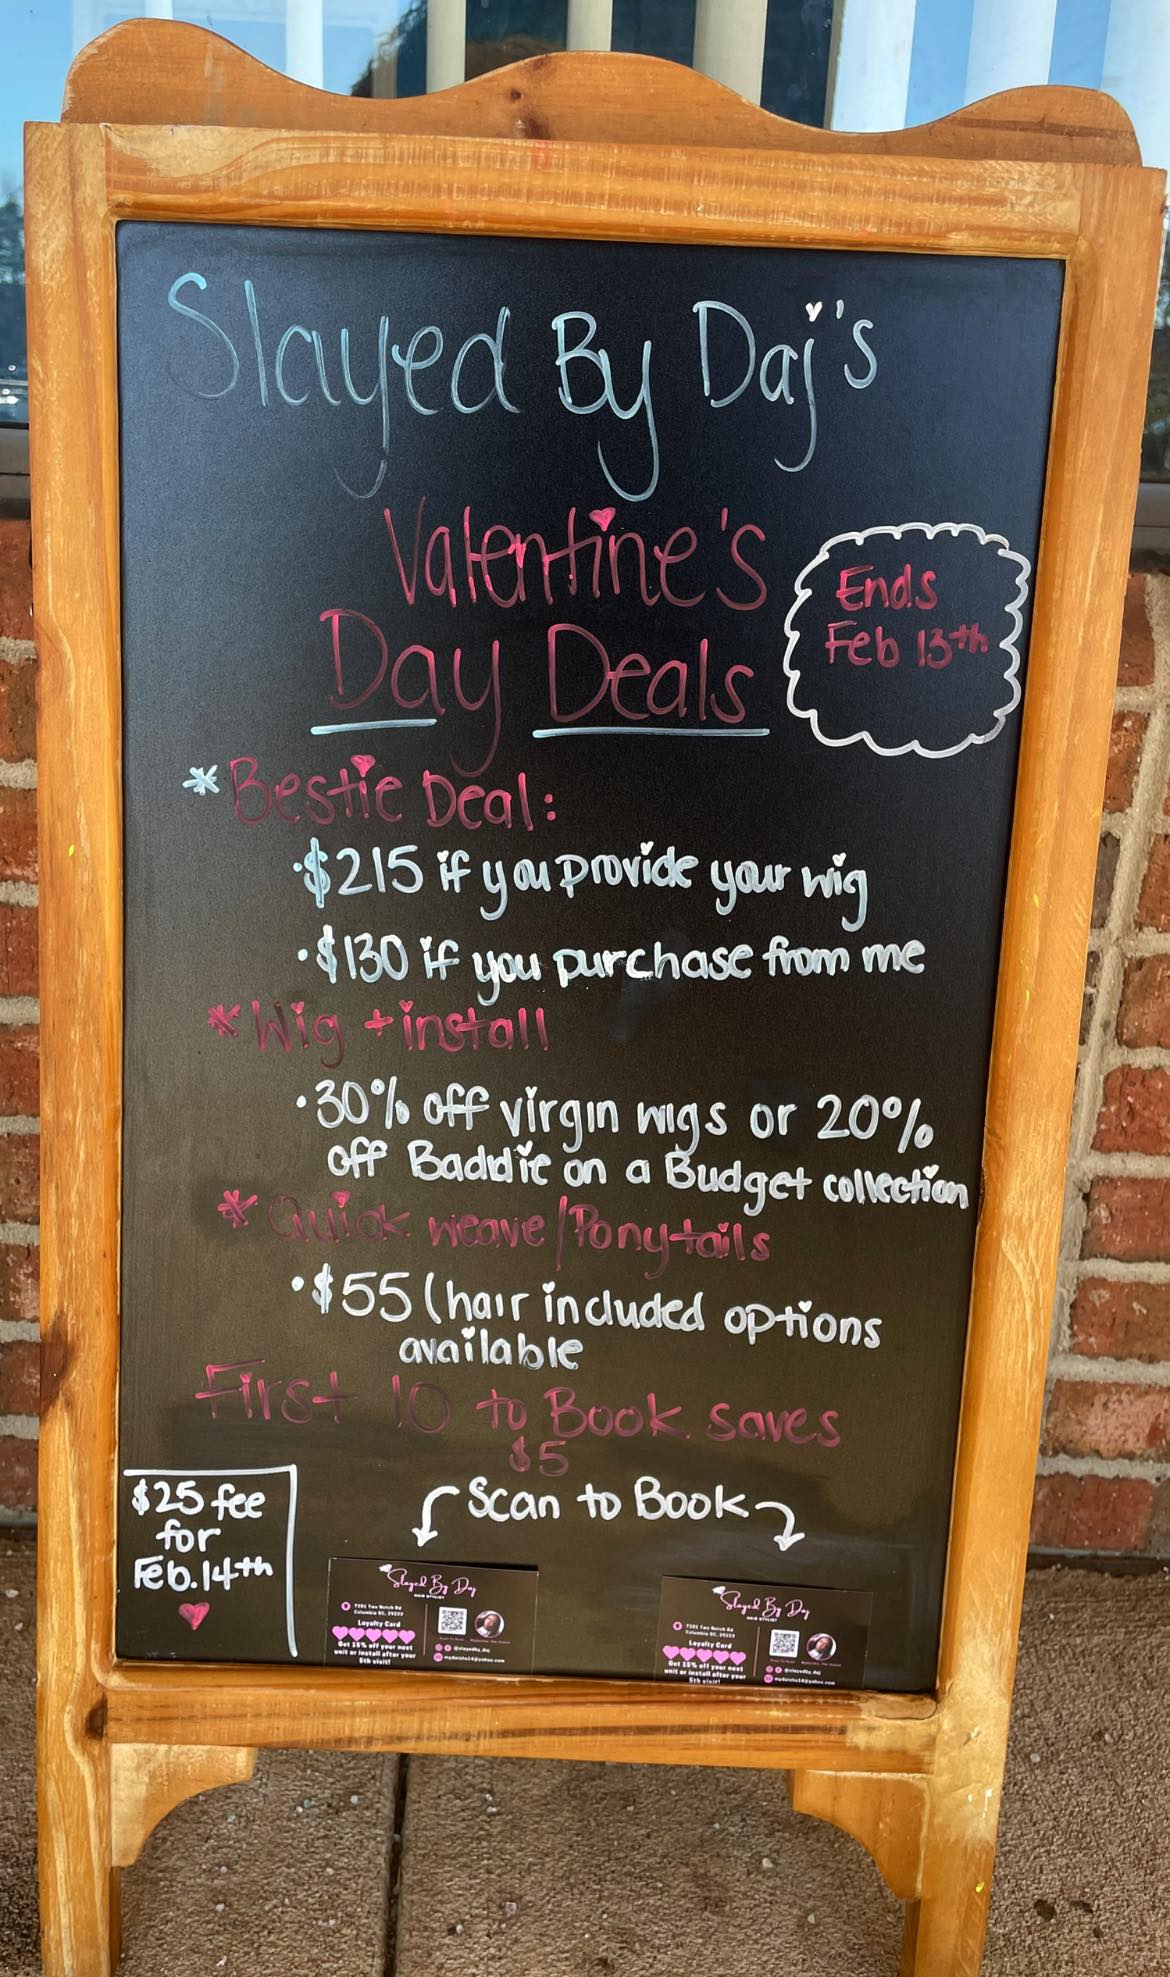 Slayed By Daj's
Valentine's
Day Deals
Ends
Feb 13th
*Bestie Deal:
·$215 if you provide your wig
·$130 if you purchase from me
*Wig + install
·30% off virgin wigs or 20%
off Baddie on a Budget collection
*Quick weave/Ponytails
·$55 (hair included options
available
First 10 to Book saves
$5
$25 fee
for
Feb.14th
Scan to Book
Slayed By Daj
HAIR STYLIST
7201 Two Notch Rd
Columbia SC, 29223
Loyalty Card
Get 15% off your next
unit or install after your
5th visit!
@slayedby_daj
Slayed By Daj
HAIR STYLIST
7201 Two Notch Rd
Columbia SC, 29223
Loyalty Card
Get 15% off your next
unit or install after your
5th visit!
@slayedby_daj